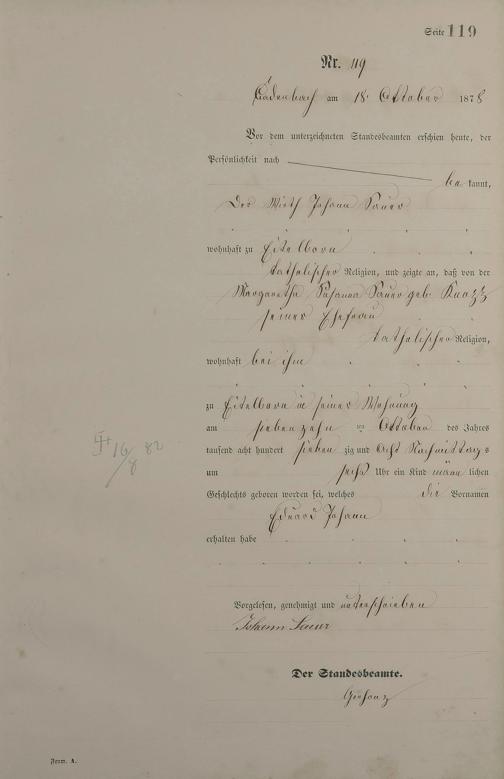 Seite 119
Nr. 119
Cadenbach am 18. Oktober 1878
Vor dem unterzeichneten Standesbeamten erschien heute, der
Persönlichkeit nach
bekannt,
Der Wirth Johann Sauer
wohnhaft zu Eitelborn
katholischer Religion, und zeigte an, daß von der
Margaretha Susanna Sauer geb. Knapp
seiner Ehefrau
katholischer Religion,
wohnhaft bei ihm
zu Eitelborn in seiner Wohnung
am siebenzehn ten Oktober des Jahres
tausend acht hundert siebenzig und Acht Nachmittags
um sechs Uhr ein Kind männlichen
Geschlechts geboren worden sei, welches die Vornamen
Eduard Johann
erhalten habe
Vorgelesen, genehmigt und unterschrieben
Johann Sauer
Der Standesbeamte.
16/8 82
Form. A.